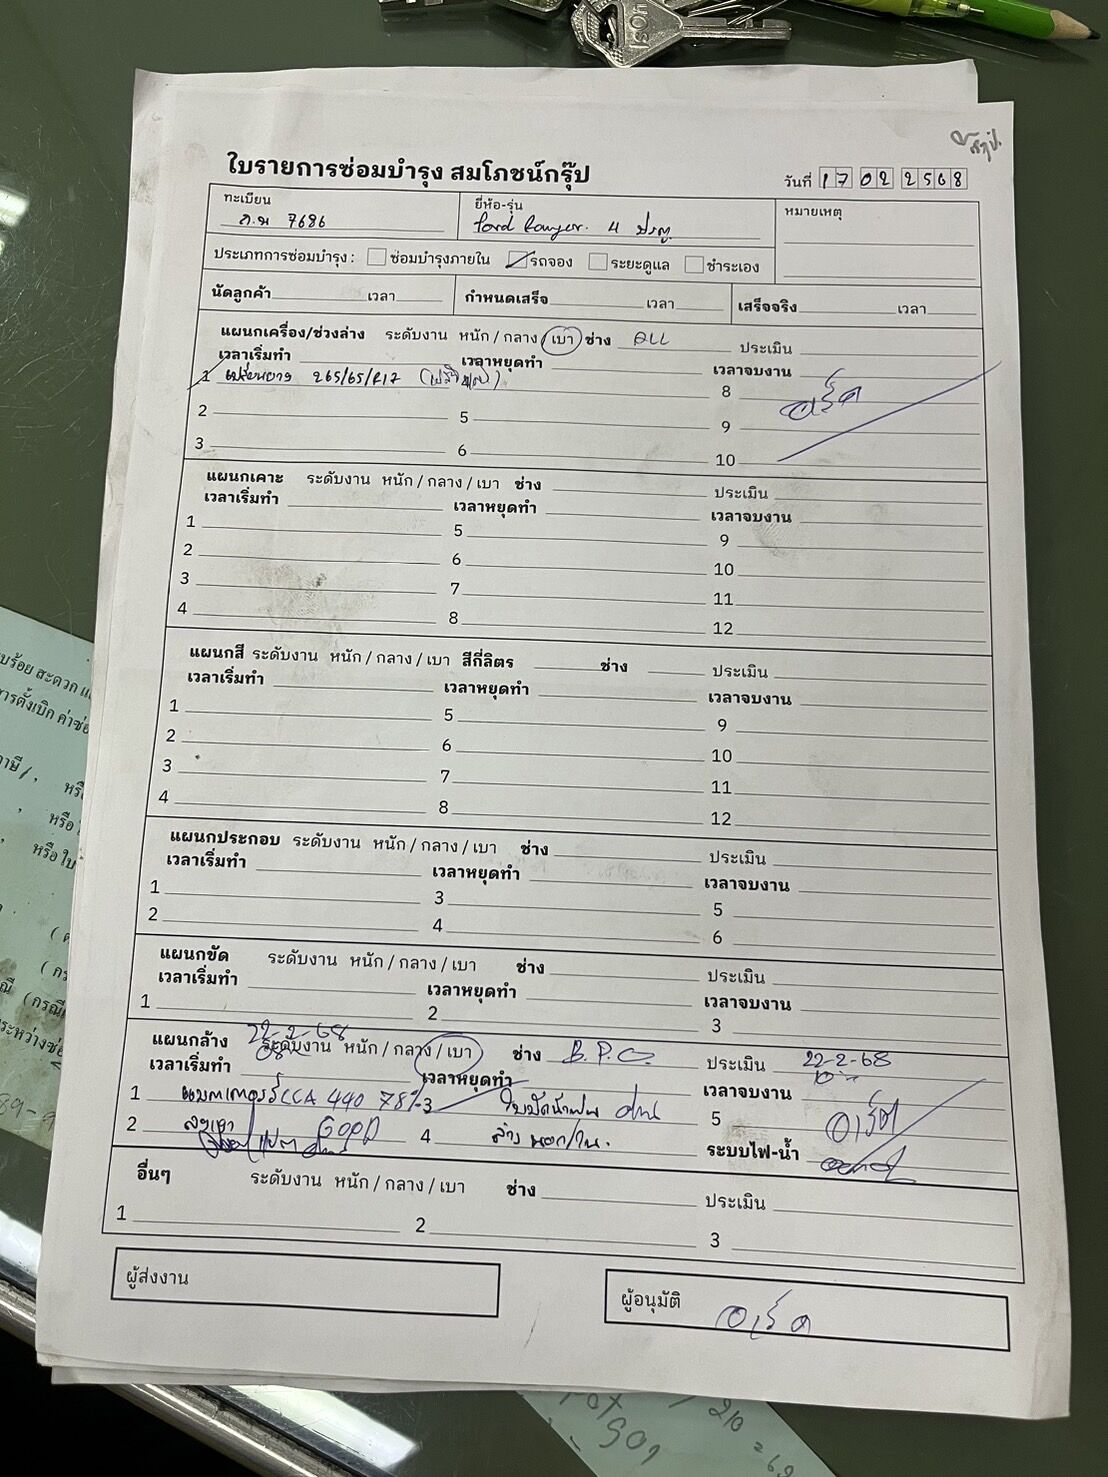 ใบรายการซ่อมบำรุง สมโภชน์กรุ๊ป
วันที่ 17 02 2568
ทะเบียน 7686
ยี่ห้อ-รุ่น Ford Ranger. 4 ประตู
หมายเหตุ
ประเภทการซ่อมบำรุง : ซ่อมบำรุงภายใน รถจอง ระยะดูแล ชำระเอง
นัดลูกค้า เวลา กำหนดเสร็จ เวลา เสร็จจริง เวลา
แผนกเครื่อง/ช่วงล่าง ระดับงาน หนัก / กลาง / เบา ช่าง ALL ประเมิน
เวลาเริ่มทำ เวลาหยุดทำ เวลาจบงาน
1 เปลี่ยนยาง 265/65/R17 8
2 5 9
3 6 10
แผนกเคาะ ระดับงาน หนัก / กลาง / เบา ช่าง ประเมิน
เวลาเริ่มทำ เวลาหยุดทำ เวลาจบงาน
1 5 9
2 6 10
3 7 11
4 8 12
แผนกสี ระดับงาน หนัก / กลาง / เบา สีกี่ลิตร ช่าง ประเมิน
เวลาเริ่มทำ เวลาหยุดทำ เวลาจบงาน
1 5 9
2 6 10
3 7 11
4 8 12
แผนกประกอบ ระดับงาน หนัก / กลาง / เบา ช่าง ประเมิน
เวลาเริ่มทำ เวลาหยุดทำ เวลาจบงาน
1 3 5
2 4 6
แผนกขัด ระดับงาน หนัก / กลาง / เบา ช่าง ประเมิน
เวลาเริ่มทำ เวลาหยุดทำ เวลาจบงาน
1 2 3
22-2-68
แผนกล้าง ระดับงาน หนัก / กลาง / เบา ช่าง B.P.C. ประเมิน 22-2-68
เวลาเริ่มทำ เวลาหยุดทำ เวลาจบงาน
1 แบตเตอรี่ CCA 440 78% 3 ใบปัดน้ำฝน 5
2 GOOD 4 ล้าง นอก/ใน. ระบบไฟ-น้ำ
อื่นๆ ระดับงาน หนัก / กลาง / เบา ช่าง ประเมิน
1 2 3
ผู้ส่งงาน
ผู้อนุมัติ